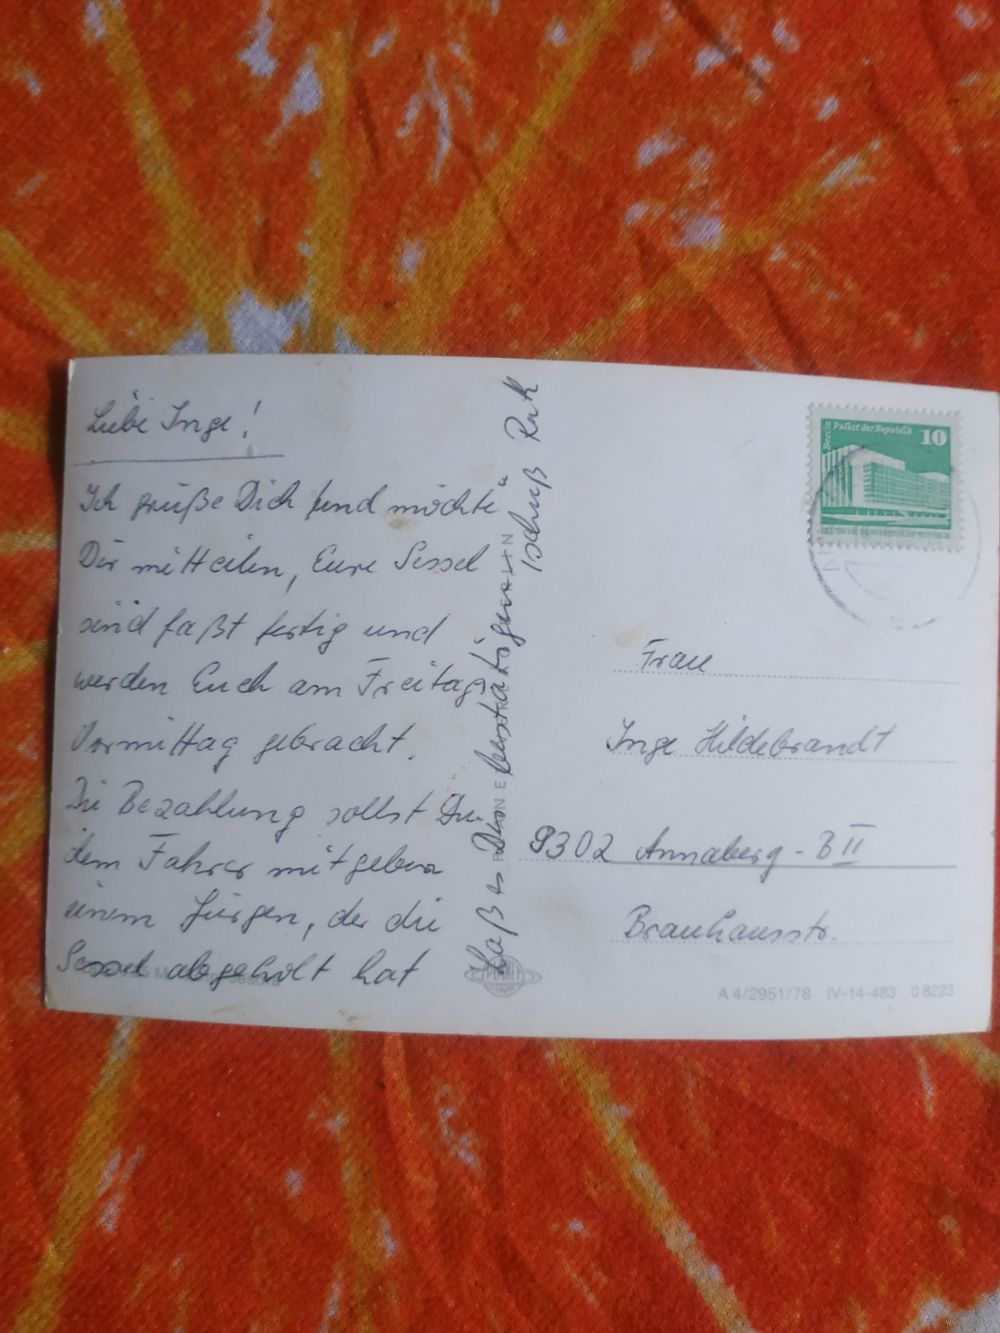 Liebe Inge!
Ich grüße Dich und möchte
Dir mitteilen, Eure Sessel
sind faßt fertig und
werden Euch am Freitag
Vormittag gebracht.
Die Bezahlung sollst Du
dem Fahrer mitgeben
einem Jürgen, der die
Sessel abgeholt hat
Laß es Dir bestätigen
Tschüß
Berlin Palast der Republik
10
Frau
Inge Hildebrandt
9302 Annaberg - B II
Brauhausstr.
PLANET
A 4/2951/78 IV-14-483 0 8223